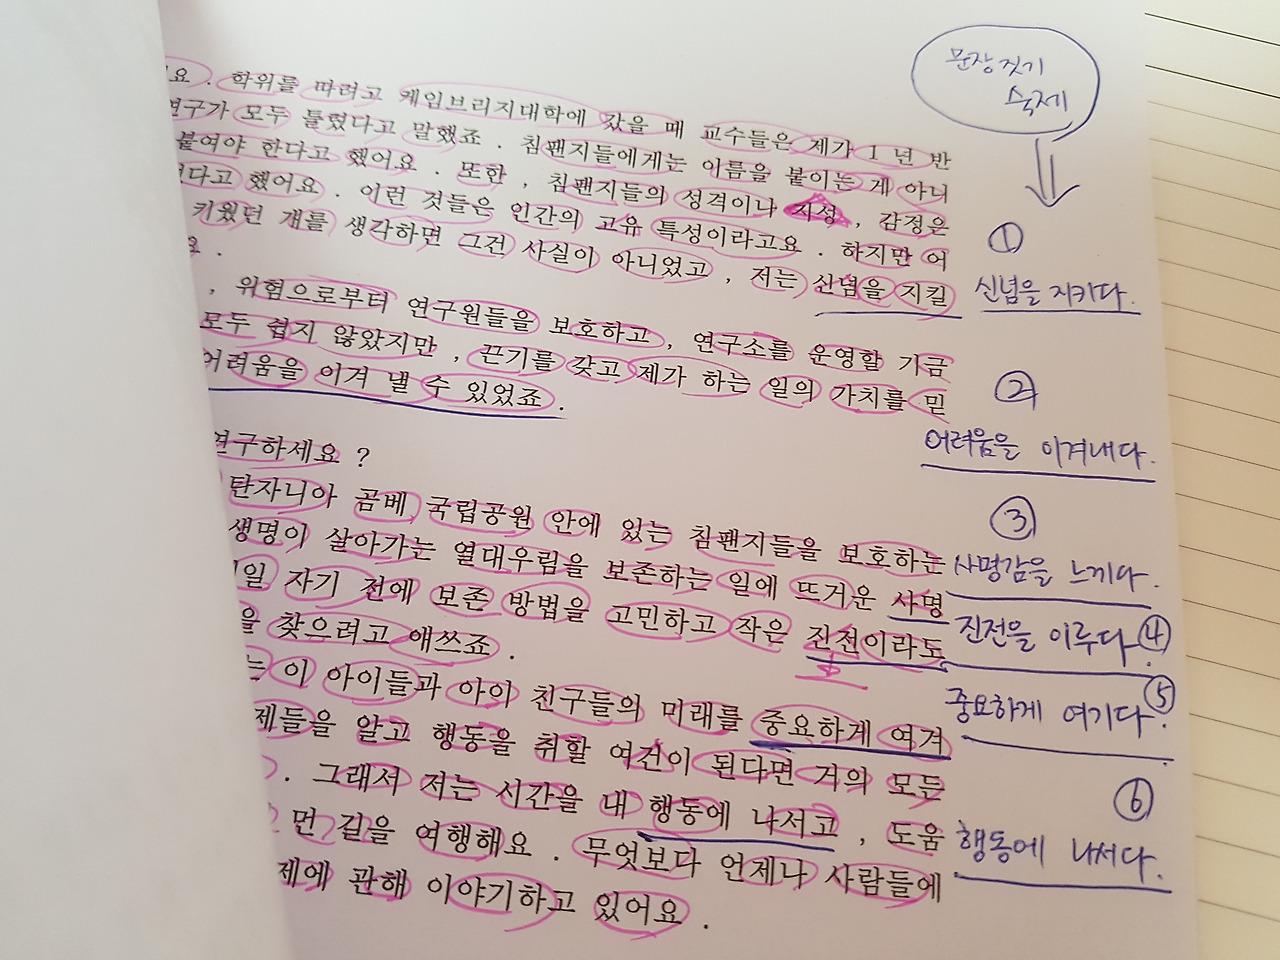 문장짓기
숙제
요 . 학위를 따려고 케임브리지대학에 갔을 때 교수들은 제가 1 년 반
연구가 모두 틀렸다고 말했죠 . 침팬지들에게는 이름을 붙이는 게 아니
붙여야 한다고 했어요 . 또한 , 침팬지들의 성격이나 지성 , 감정은
다고 했어요 . 이런 것들은 인간의 고유 특성이라고요 . 하지만 어
키웠던 개를 생각하면 그건 사실이 아니었고 , 저는 신념을 지킬
요 .
① 신념을 지키다.
, 위험으로부터 연구원들을 보호하고 , 연구소를 운영할 기금
모두 쉽지 않았지만 , 끈기를 갖고 제가 하는 일의 가치를 믿
어려움을 이겨 낼 수 있었죠 .
② 어려움을 이겨내다.
연구하세요 ?
탄자니아 곰베 국립공원 안에 있는 침팬지들을 보호하는
생명이 살아가는 열대우림을 보존하는 일에 뜨거운 사명
일 자기 전에 보존 방법을 고민하고 작은 진전이라도
을 찾으려고 애쓰죠 .
③ 사명감을 느끼다.
진전을 이루다. ④
는 이 아이들과 아이 친구들의 미래를 중요하게 여겨
제들을 알고 행동을 취할 여건이 된다면 거의 모든
. 그래서 저는 시간을 내 행동에 나서고 , 도움
먼 길을 여행해요 . 무엇보다 언제나 사람들에
제에 관해 이야기하고 있어요 .
중요하게 여기다. ⑤
⑥ 행동에 나서다.